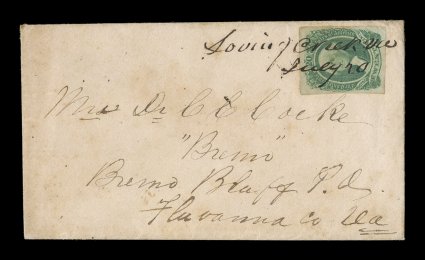 Loving Creek Va
July 20
Mrs Dr C E Cocke
"Bremo"
Bremo Bluff P.O.
Fluvanna co Va